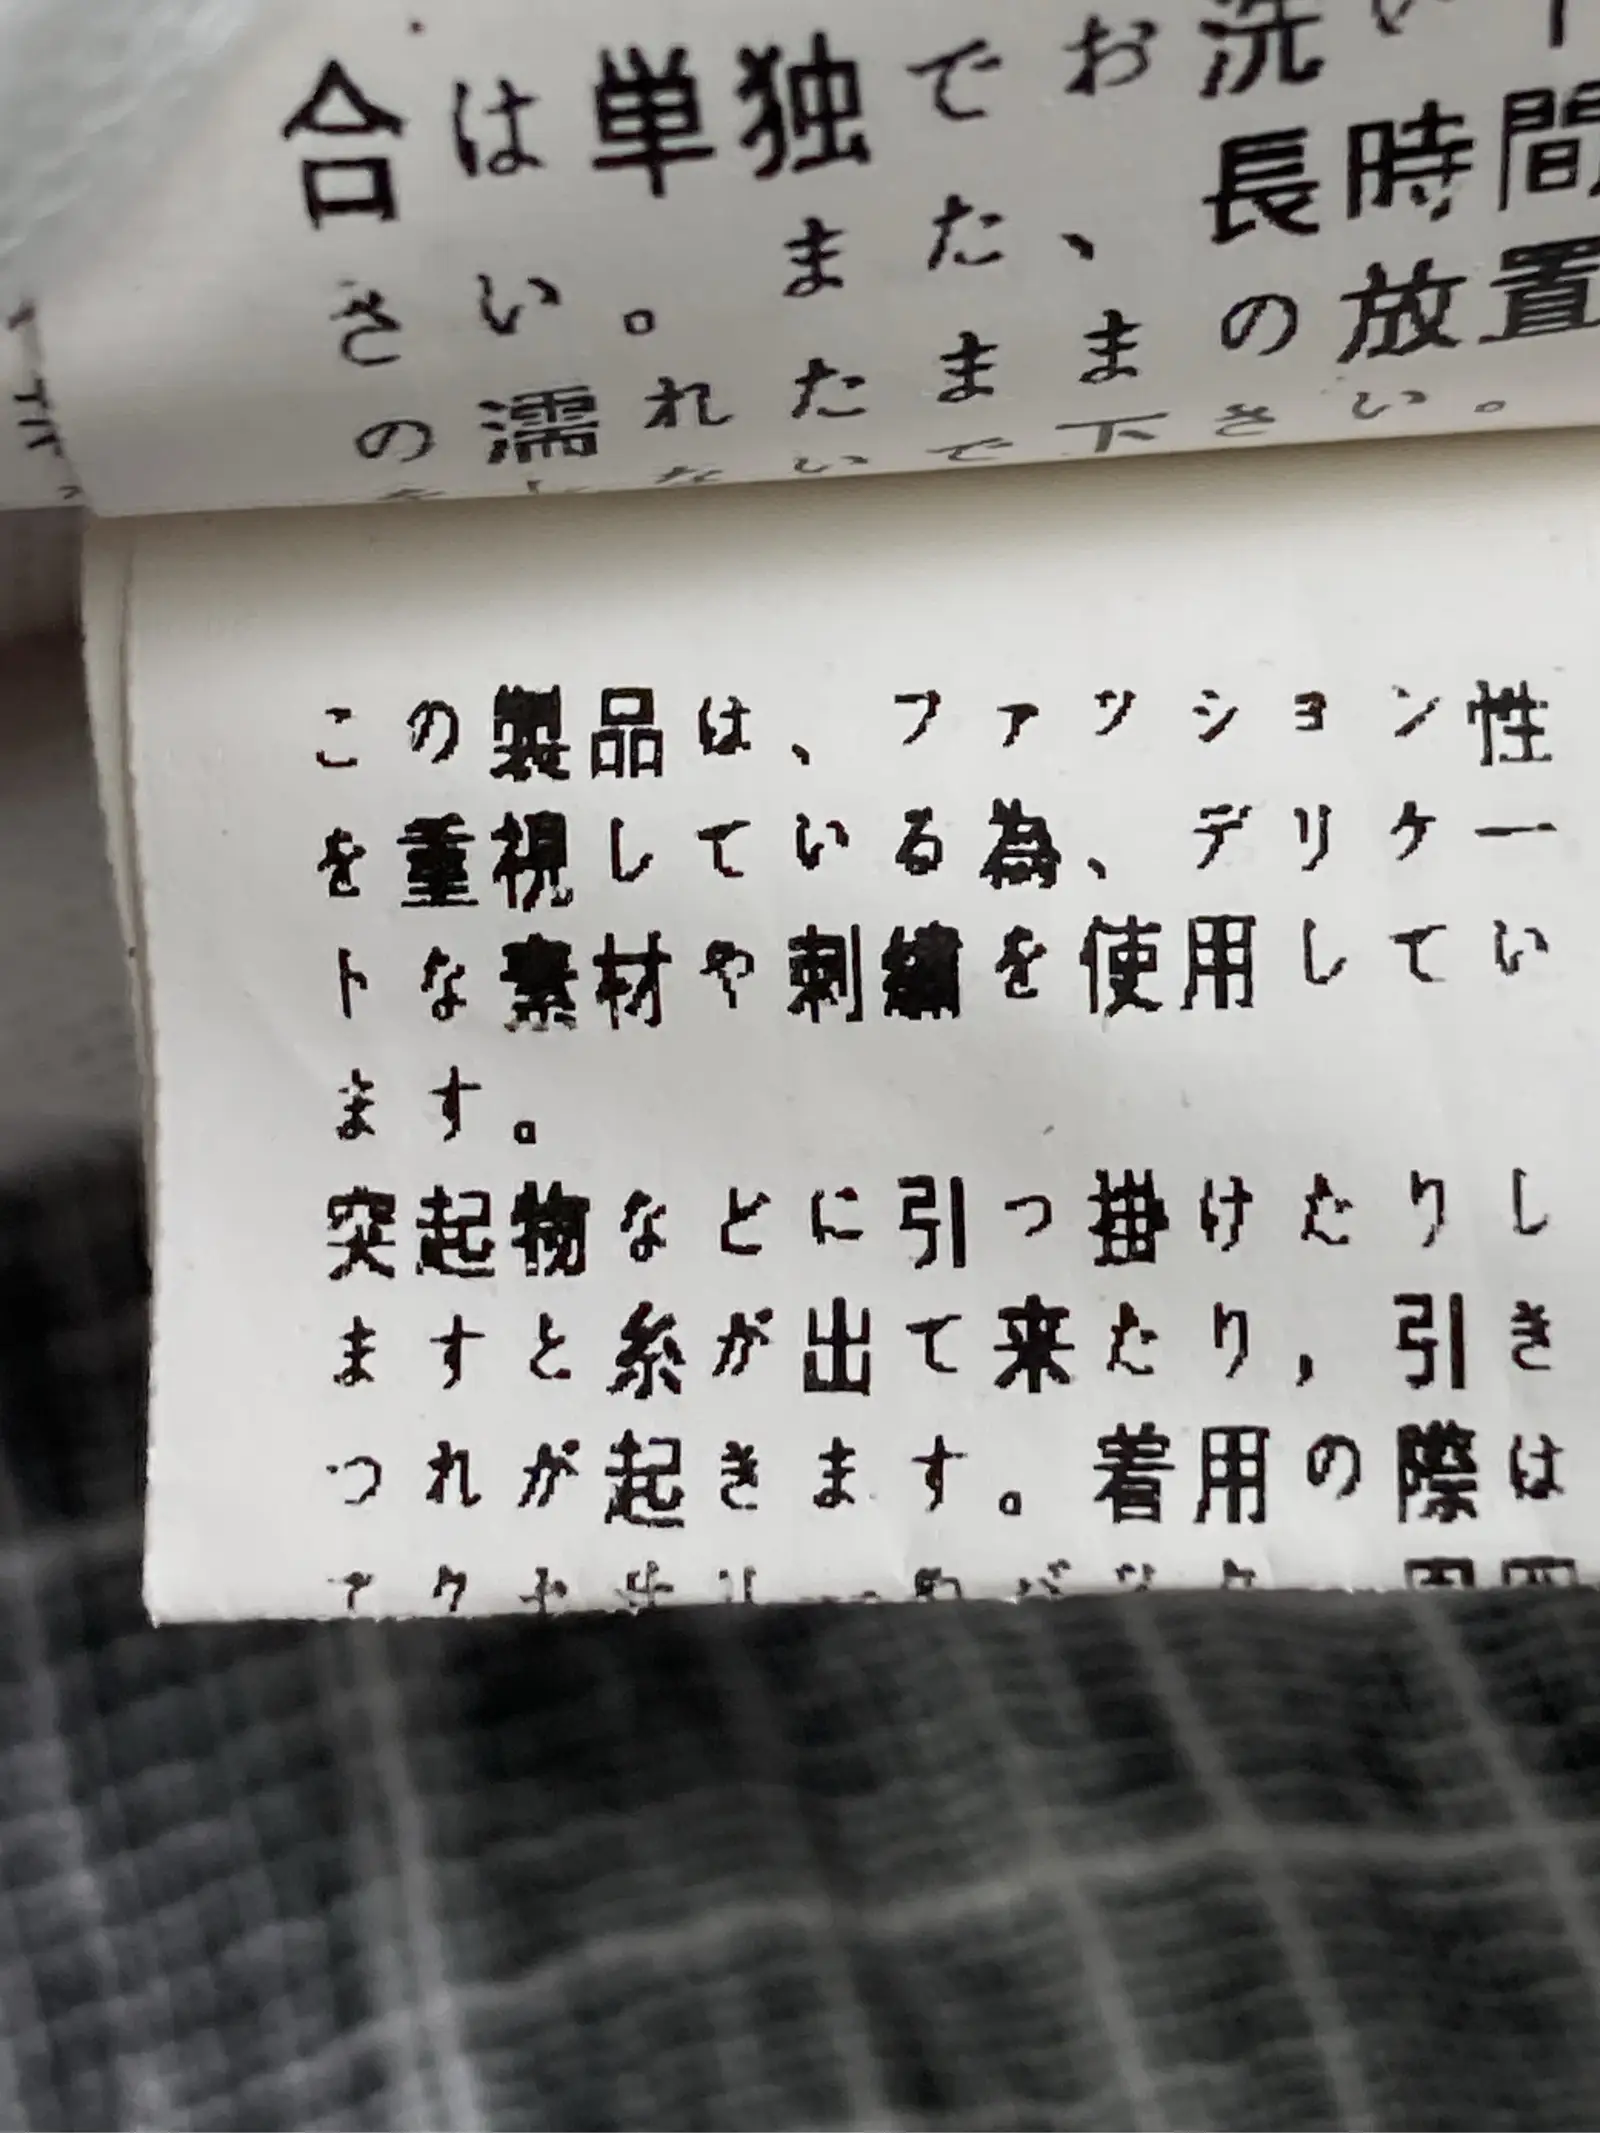 合は単独でお洗い
さい。また、長時間
の濡れたままの放置
をしないで下さい。
この製品は、ファッション性
を重視している為、デリケー
トな素材や刺繍を使用してい
ます。
突起物などに引っ掛けたりし
ますと糸が出て来たり,引き
つれが起きます。着用の際は